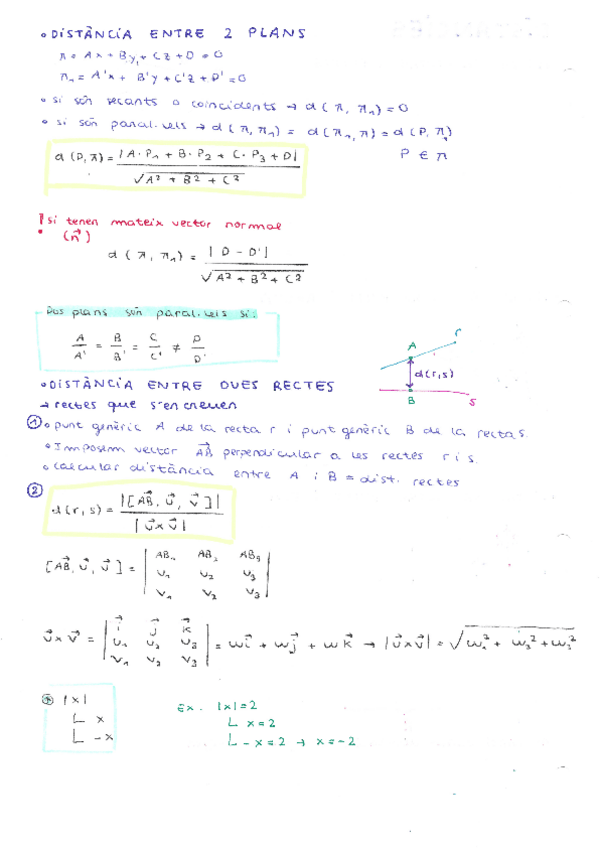 • DISTÀNCIA ENTRE 2 PLANS
π = Ax + By + Cz + D = 0
π₁ = A'x + B'y + C'z + D' = 0
• si són secants o coincidents → d(π, π₁) = 0
• si són paral·lels → d(π, π₁) = d(π₁, π) = d(P, π₁)
P ∈ π
d(P, π) = |A·P₁ + B·P₂ + C·P₃ + D| / √A² + B² + C²
! si tenen mateix vector normal
(n⃗)
d(π, π₁) = |D - D'| / √A² + B² + C²
Dos plans són paral·lels si:
A/A' = B/B' = C/C' ≠ D/D'
A
r
d(r,s)
B
s
• DISTÀNCIA ENTRE DUES RECTES
→ rectes que s'encreuen
① • punt genèric A de la recta r i punt genèric B de la recta s.
• Imposem vector AB⃗ perpendicular a les rectes r i s.
• Calcular distància entre A i B = dist. rectes
②
d(r,s) = |[AB⃗, u⃗, v⃗]| / |u⃗ x v⃗|
[AB⃗, u⃗, v⃗] = | AB₁ AB₂ AB₃ |
| u₁ u₂ u₃ |
| v₁ v₂ v₃ |
u⃗ x v⃗ = | i⃗ j⃗ k⃗ | = wi⃗ + wj⃗ + wk⃗ → |u⃗ x v⃗| = √w₁² + w₂² + w₃²
| u₁ u₂ u₃ |
| v₁ v₂ v₃ |
|x|
∟ x
∟ -x
Ex. |x| = 2
∟ x = 2
∟ -x = 2 → x = -2